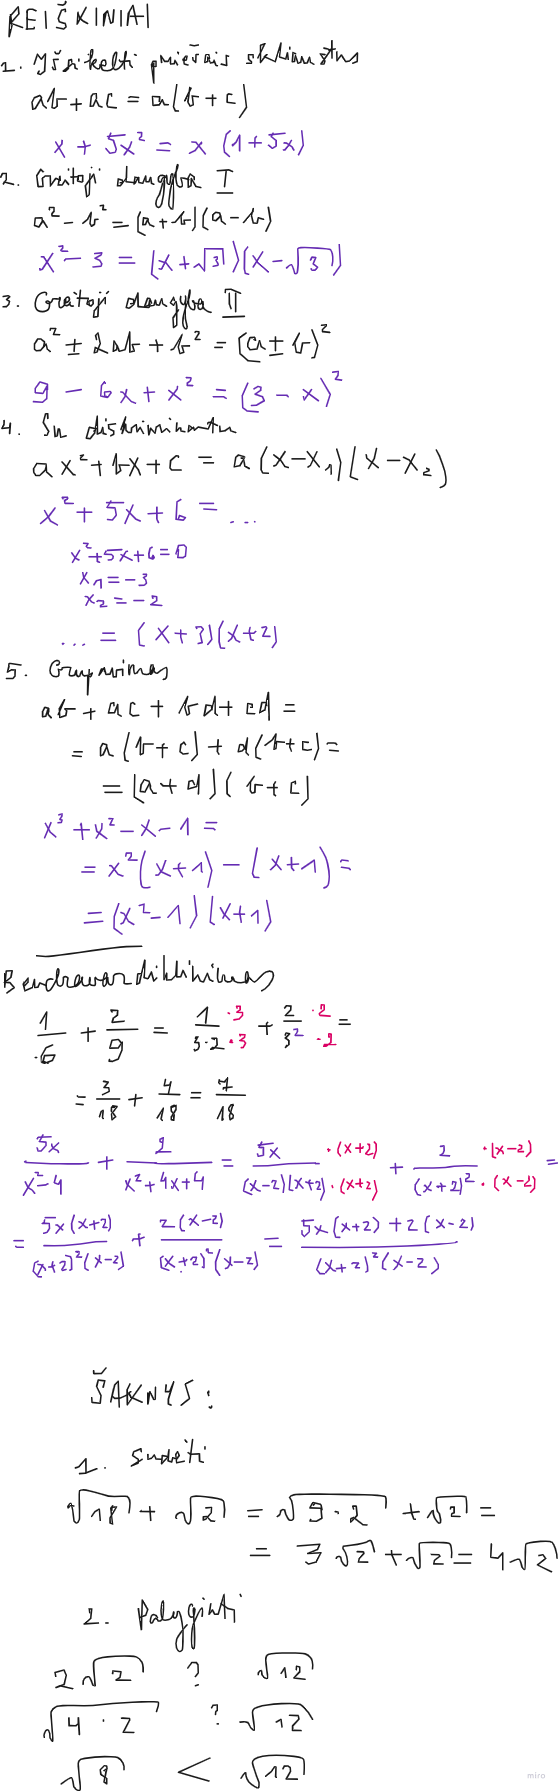 REIŠKINIAI
1. Išsikelti priešais skliaustus
ab + ac = a(b + c)
x + 5x² = x (1 + 5x)
2. Greitoji daugyba I
a² - b² = (a + b)(a - b)
x² - 3 = (x + √3)(x - √3)
3. Greitoji daugyba II
a² ± 2ab + b² = (a ± b)²
9 - 6x + x² = (3 - x)²
4. Su diskriminantu
ax² + bx + c = a(x - x₁)(x - x₂)
x² + 5x + 6 = ...
x² + 5x + 6 = 0
x₁ = -3
x₂ = -2
... = (x + 3)(x + 2)
5. Grupavimas
ab + ac + bd + cd =
= a(b + c) + d(b + c) =
= (a + d)(b + c)
x³ + x² - x - 1 =
= x²(x + 1) - (x + 1) =
= (x² - 1)(x + 1)
Bendravardiklinimas
1/6 + 2/9 = 1/(3·2) ·3/·3 + 2/3² ·2/·2 =
= 3/18 + 4/18 = 7/18
5x/(x² - 4) + 2/(x² + 4x + 4) = 5x/((x - 2)(x + 2)) ·(x + 2)/·(x + 2) + 2/(x + 2)² ·(x - 2)/·(x - 2) =
= 5x(x + 2)/((x + 2)²(x - 2)) + 2(x - 2)/((x + 2)²(x - 2)) = (5x(x + 2) + 2(x - 2))/((x + 2)²(x - 2))
ŠAKNYS:
1. Sudėti
√18 + √2 = √(9 · 2) + √2 =
= 3√2 + √2 = 4√2
2. Palyginti
2√2 ? √12
√(4 · 2) ? √12
√8 < √12
miro